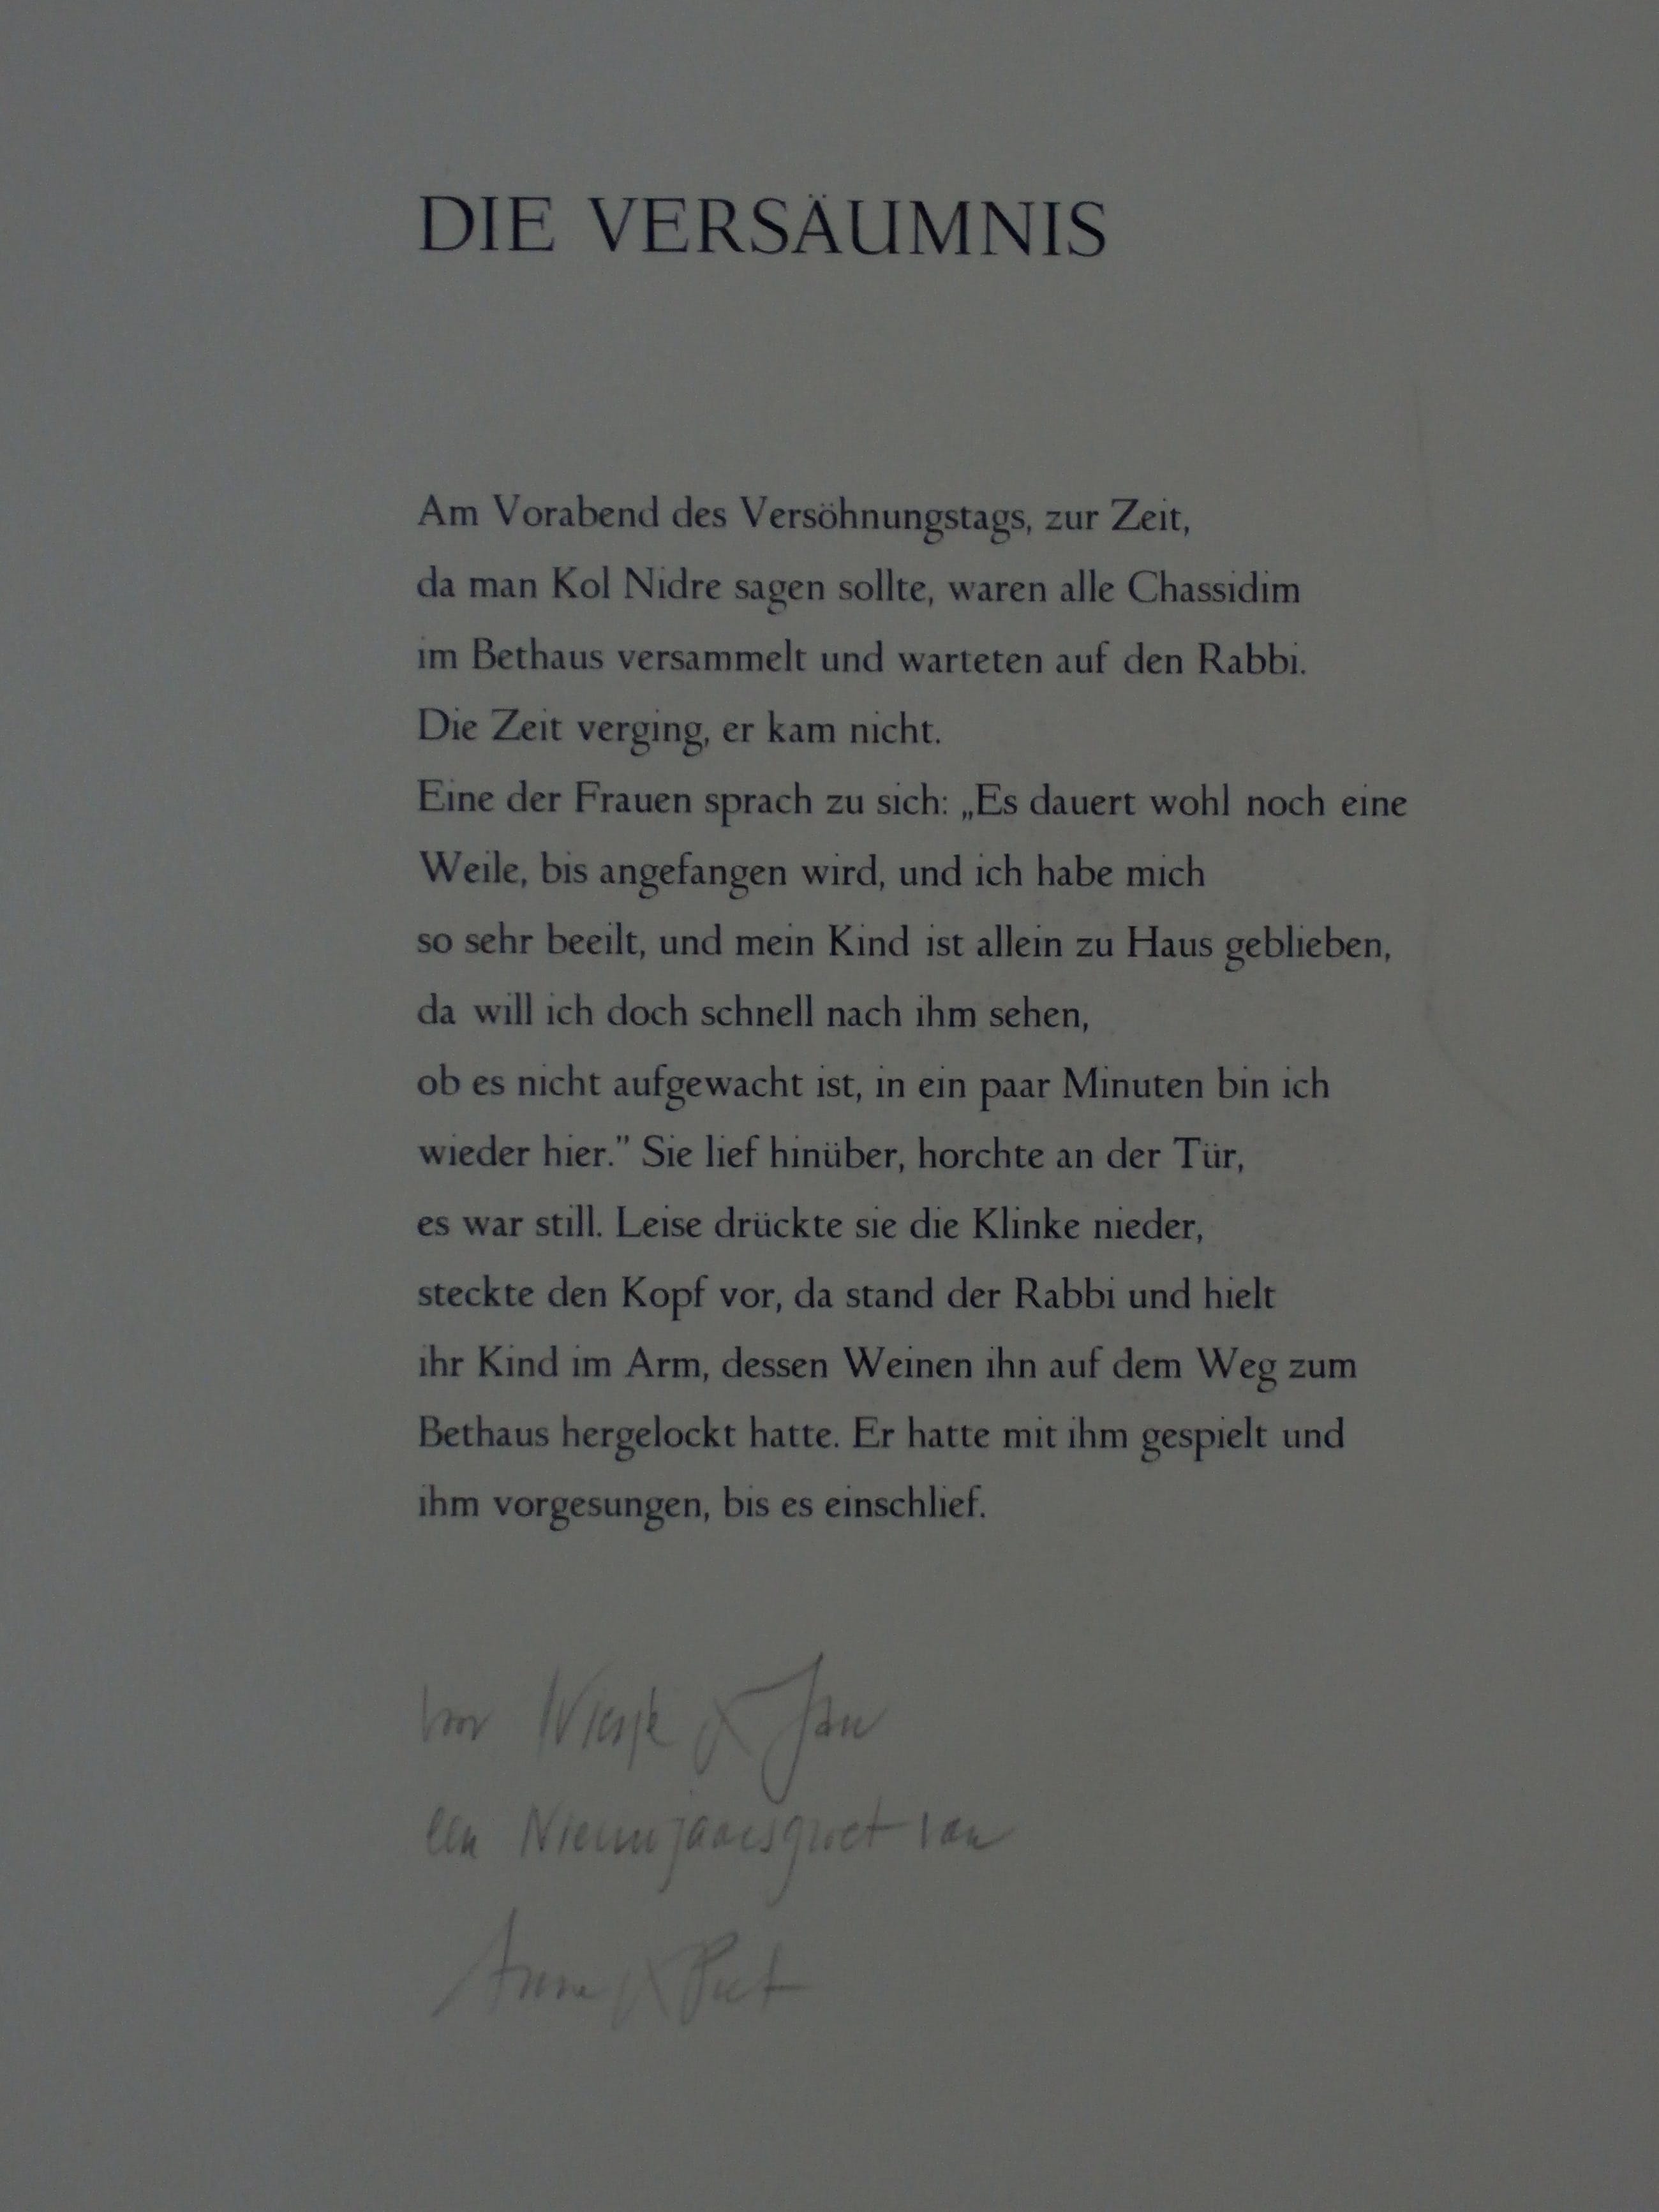 DIE VERSÄUMNIS
Am Vorabend des Versöhnungstags, zur Zeit,
da man Kol Nidre sagen sollte, waren alle Chassidim
im Bethaus versammelt und warteten auf den Rabbi.
Die Zeit verging, er kam nicht.
Eine der Frauen sprach zu sich: „Es dauert wohl noch eine
Weile, bis angefangen wird, und ich habe mich
so sehr beeilt, und mein Kind ist allein zu Haus geblieben,
da will ich doch schnell nach ihm sehen,
ob es nicht aufgewacht ist, in ein paar Minuten bin ich
wieder hier.” Sie lief hinüber, horchte an der Tür,
es war still. Leise drückte sie die Klinke nieder,
steckte den Kopf vor, da stand der Rabbi und hielt
ihr Kind im Arm, dessen Weinen ihn auf dem Weg zum
Bethaus hergelockt hatte. Er hatte mit ihm gespielt und
ihm vorgesungen, bis es einschlief.
voor & Jan
een Nieuwjaarsgroet van
& Piet